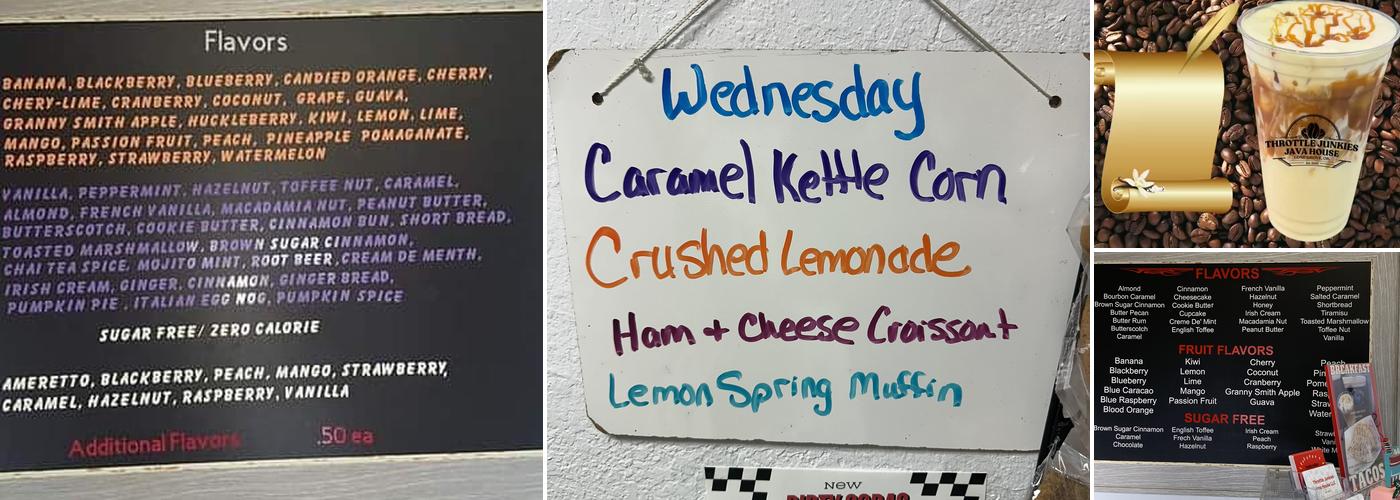 Flavors
BANANA, BLACKBERRY, BLUEBERRY, CANDIED ORANGE, CHERRY,
CHERY-LIME, CRANBERRY, COCONUT, GRAPE, GUAVA,
GRANNY SMITH APPLE, HUCKLEBERRY, KIWI, LEMON, LIME,
MANGO, PASSION FRUIT, PEACH, PINEAPPLE POMAGANATE,
RASPBERRY, STRAWBERRY, WATERMELON
VANILLA, PEPPERMINT, HAZELNUT, TOFFEE NUT, CARAMEL,
ALMOND, FRENCH VANILLA, MACADAMIA NUT, PEANUT BUTTER,
BUTTERSCOTCH, COOKIE BUTTER, CINNAMON BUN, SHORT BREAD,
TOASTED MARSHMALLOW, BROWN SUGAR CINNAMON,
CHAI TEA SPICE, MOJITO MINT, ROOT BEER, CREAM DE MENTH,
IRISH CREAM, GINGER, CINNAMON, GINGER BREAD,
PUMPKIN PIE, ITALIAN EGG NOG, PUMPKIN SPICE
SUGAR FREE/ ZERO CALORIE
AMERETTO, BLACKBERRY, PEACH, MANGO, STRAWBERRY,
CARAMEL, HAZELNUT, RASPBERRY, VANILLA
Additional Flavors .50 ea
Wednesday
Caramel Kettle Corn
Crushed Lemonade
Ham + Cheese Croissant
Lemon Spring Muffin
NEW
DIRTY SODAS
THROTTLE JUNKIES
JAVA HOUSE
FLAVORS
Almond Cinnamon French Vanilla Peppermint
Bourbon Caramel Cheesecake Hazelnut Salted Caramel
Brown Sugar Cinnamon Cookie Butter Honey Shortbread
Butter Pecan Cupcake Irish Cream Tiramisu
Butter Rum Creme De' Mint Macadamia Nut Toasted Marshmallow
Butterscotch English Toffee Peanut Butter Toffee Nut
Caramel Vanilla
FRUIT FLAVORS
Banana Kiwi Cherry Peach
Blackberry Lemon Coconut
Blueberry Lime Cranberry
Blue Caracao Mango Granny Smith Apple
Blue Raspberry Passion Fruit Guava
Blood Orange
SUGAR FREE
Brown Sugar Cinnamon English Toffee Irish Cream
Caramel Frech Vanilla Peach
Chocolate Hazelnut Raspberry
BREAKFAST
TACOS